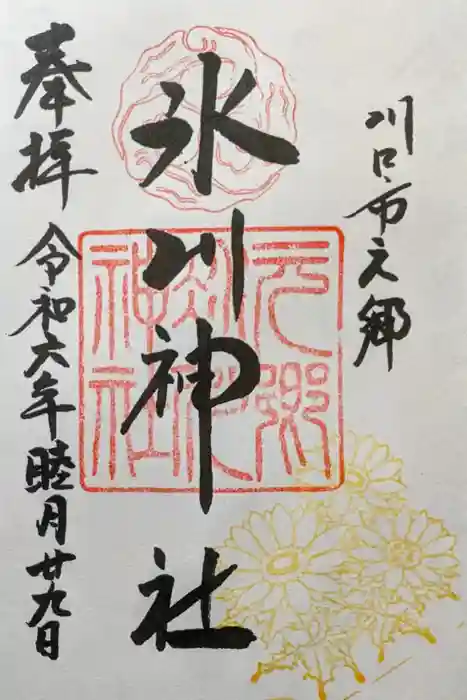 川口市元郷
氷川神社
元郷
氷川
神社
奉拝
令和六年睦月廿九日